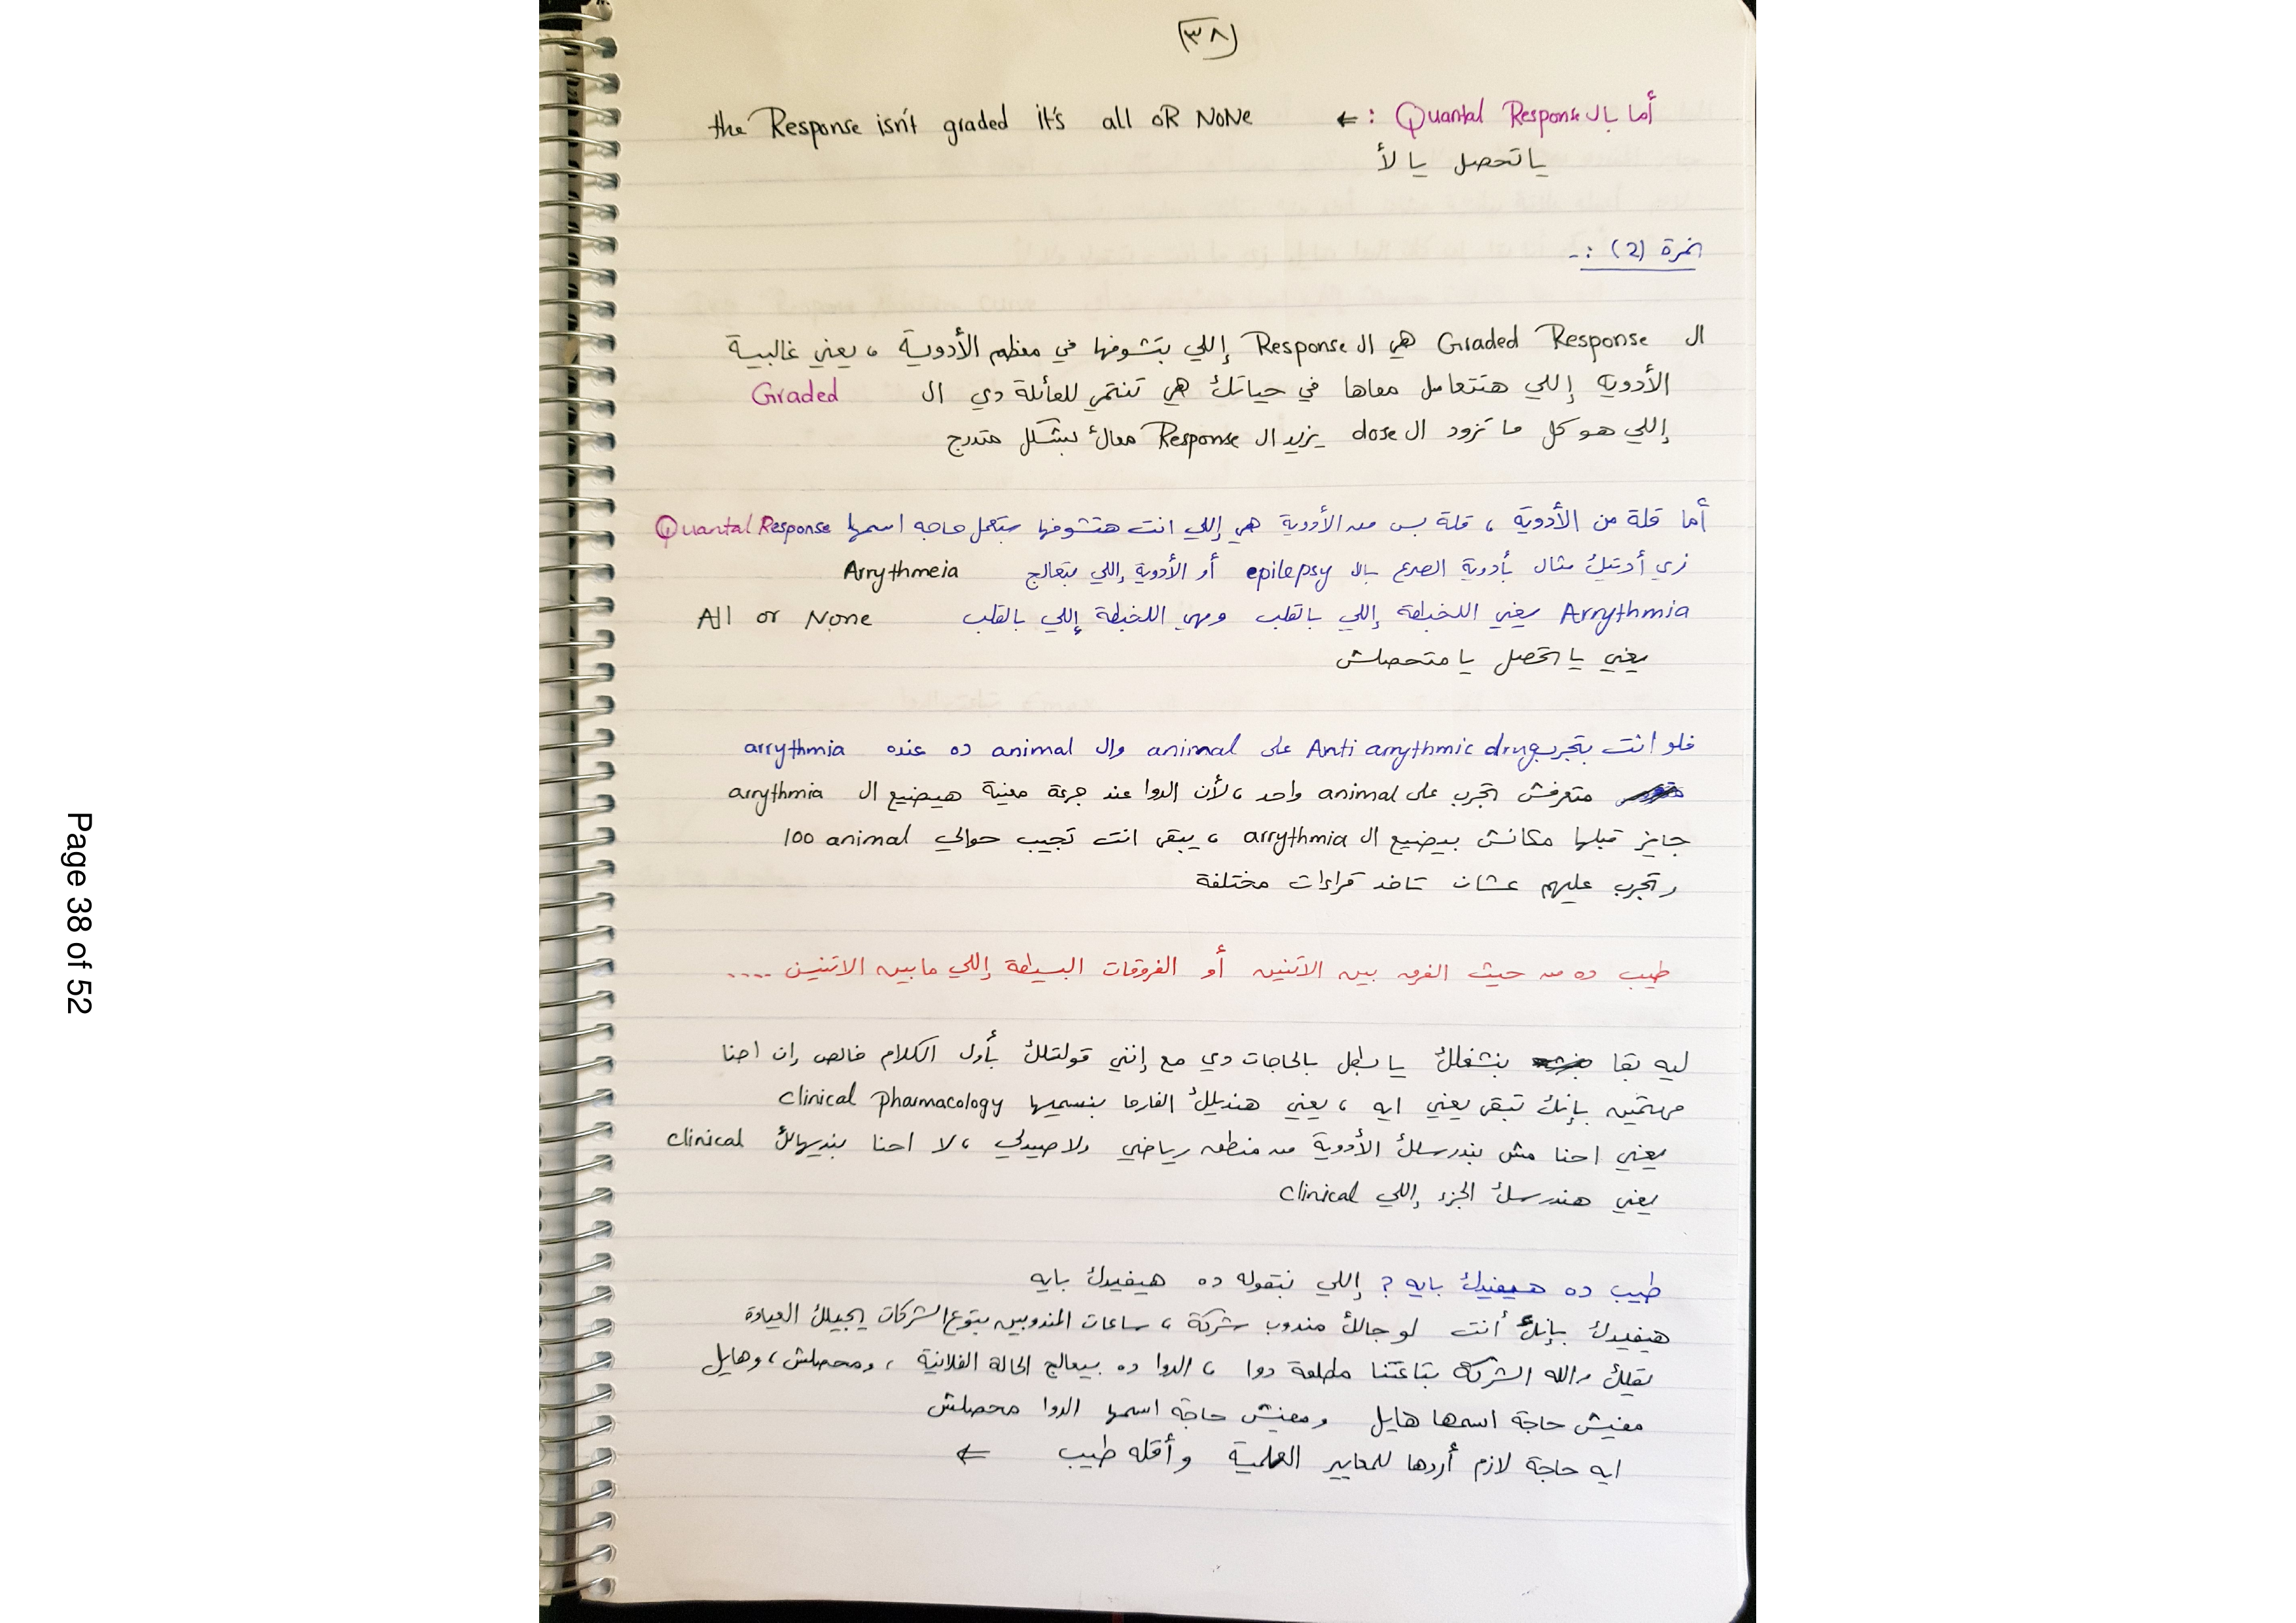 ٣٨
أما بال Quantal Response : ← the Response isn't graded it's all oR NoNe
يا تحصل يا لأ
نمرة (2) :-
ال Graded Response هي ال Response إللي بتشوفها في معظم الأدوية ، يعني غالبية
الأدوية إللي هتتعامل معاها في حياتك هي تنتمي للعائلة دي ال Graded
إللي هو كل ما تزود ال dose يزيد ال Response معاك بشكل متدرج
أما قلة من الأدوية ، قلة بس من الأدوية هي إللي انت هتشوفها بتعمل حاجه اسمها Quantal Response
زي أدتيلك مثال بأدوية الصرع بال epilepsy أو الأدوية إللي بتعالج Arrythmeia
Arrythmia يعني اللخبطة إللي بالقلب وهي اللخبطة إللي بالقلب All or None
يعني يا تحصل يا متحصلش
فلو انت بتجرب Anti arrythmic drug على animal وال animal ده عنده arrythmia
متعرفش تجرب على animal واحد ، لأن الدوا عند جرعة معينة هيضيع ال arrythmia
جايز قبلها مكانش بيضيع ال arrythmia ، يبقى انت تجيب حوالي 100 animal
وتجرب عليهم عشان تاخد قراءات مختلفة
طيب ده من حيث الفرق بين الاتنين أو الفروقات البسيطة إللي مابين الاتنين ....
ليه بقا بنشغلك يا بطل بالحاجات دي مع إنني قولتلك بأول الكلام خالص إن احنا
مهتمين بإنك تبقى يعني ايه ، يعني هنديلك الفارما بنسميها clinical pharmacology
يعني احنا مش بندرسلك الأدوية من منطق رياضي ولا صيدلي ، لا احنا بنديهالك clinical
يعني هندرسلك الجزء إللي clinical
طيب ده هيفيدك بايه ؟ إللي بتقوله ده هيفيدك بايه
هيفيدك بإنك أنت لو جالك مندوب شركة ، ساعات المندوبين بتوع الشركات يجيلك العيادة
يقلك والله الشركة بتاعتنا مطلعة دوا ، الدوا ده بيعالج الحالة الفلانية ، ومحصلش ، وهايل
مفيش حاجة اسمها هايل ومفيش حاجة اسمها الدوا محصلش
ايه حاجة لازم أردها للمعايير العلمية وأقله طيب ←
Page 38 of 52